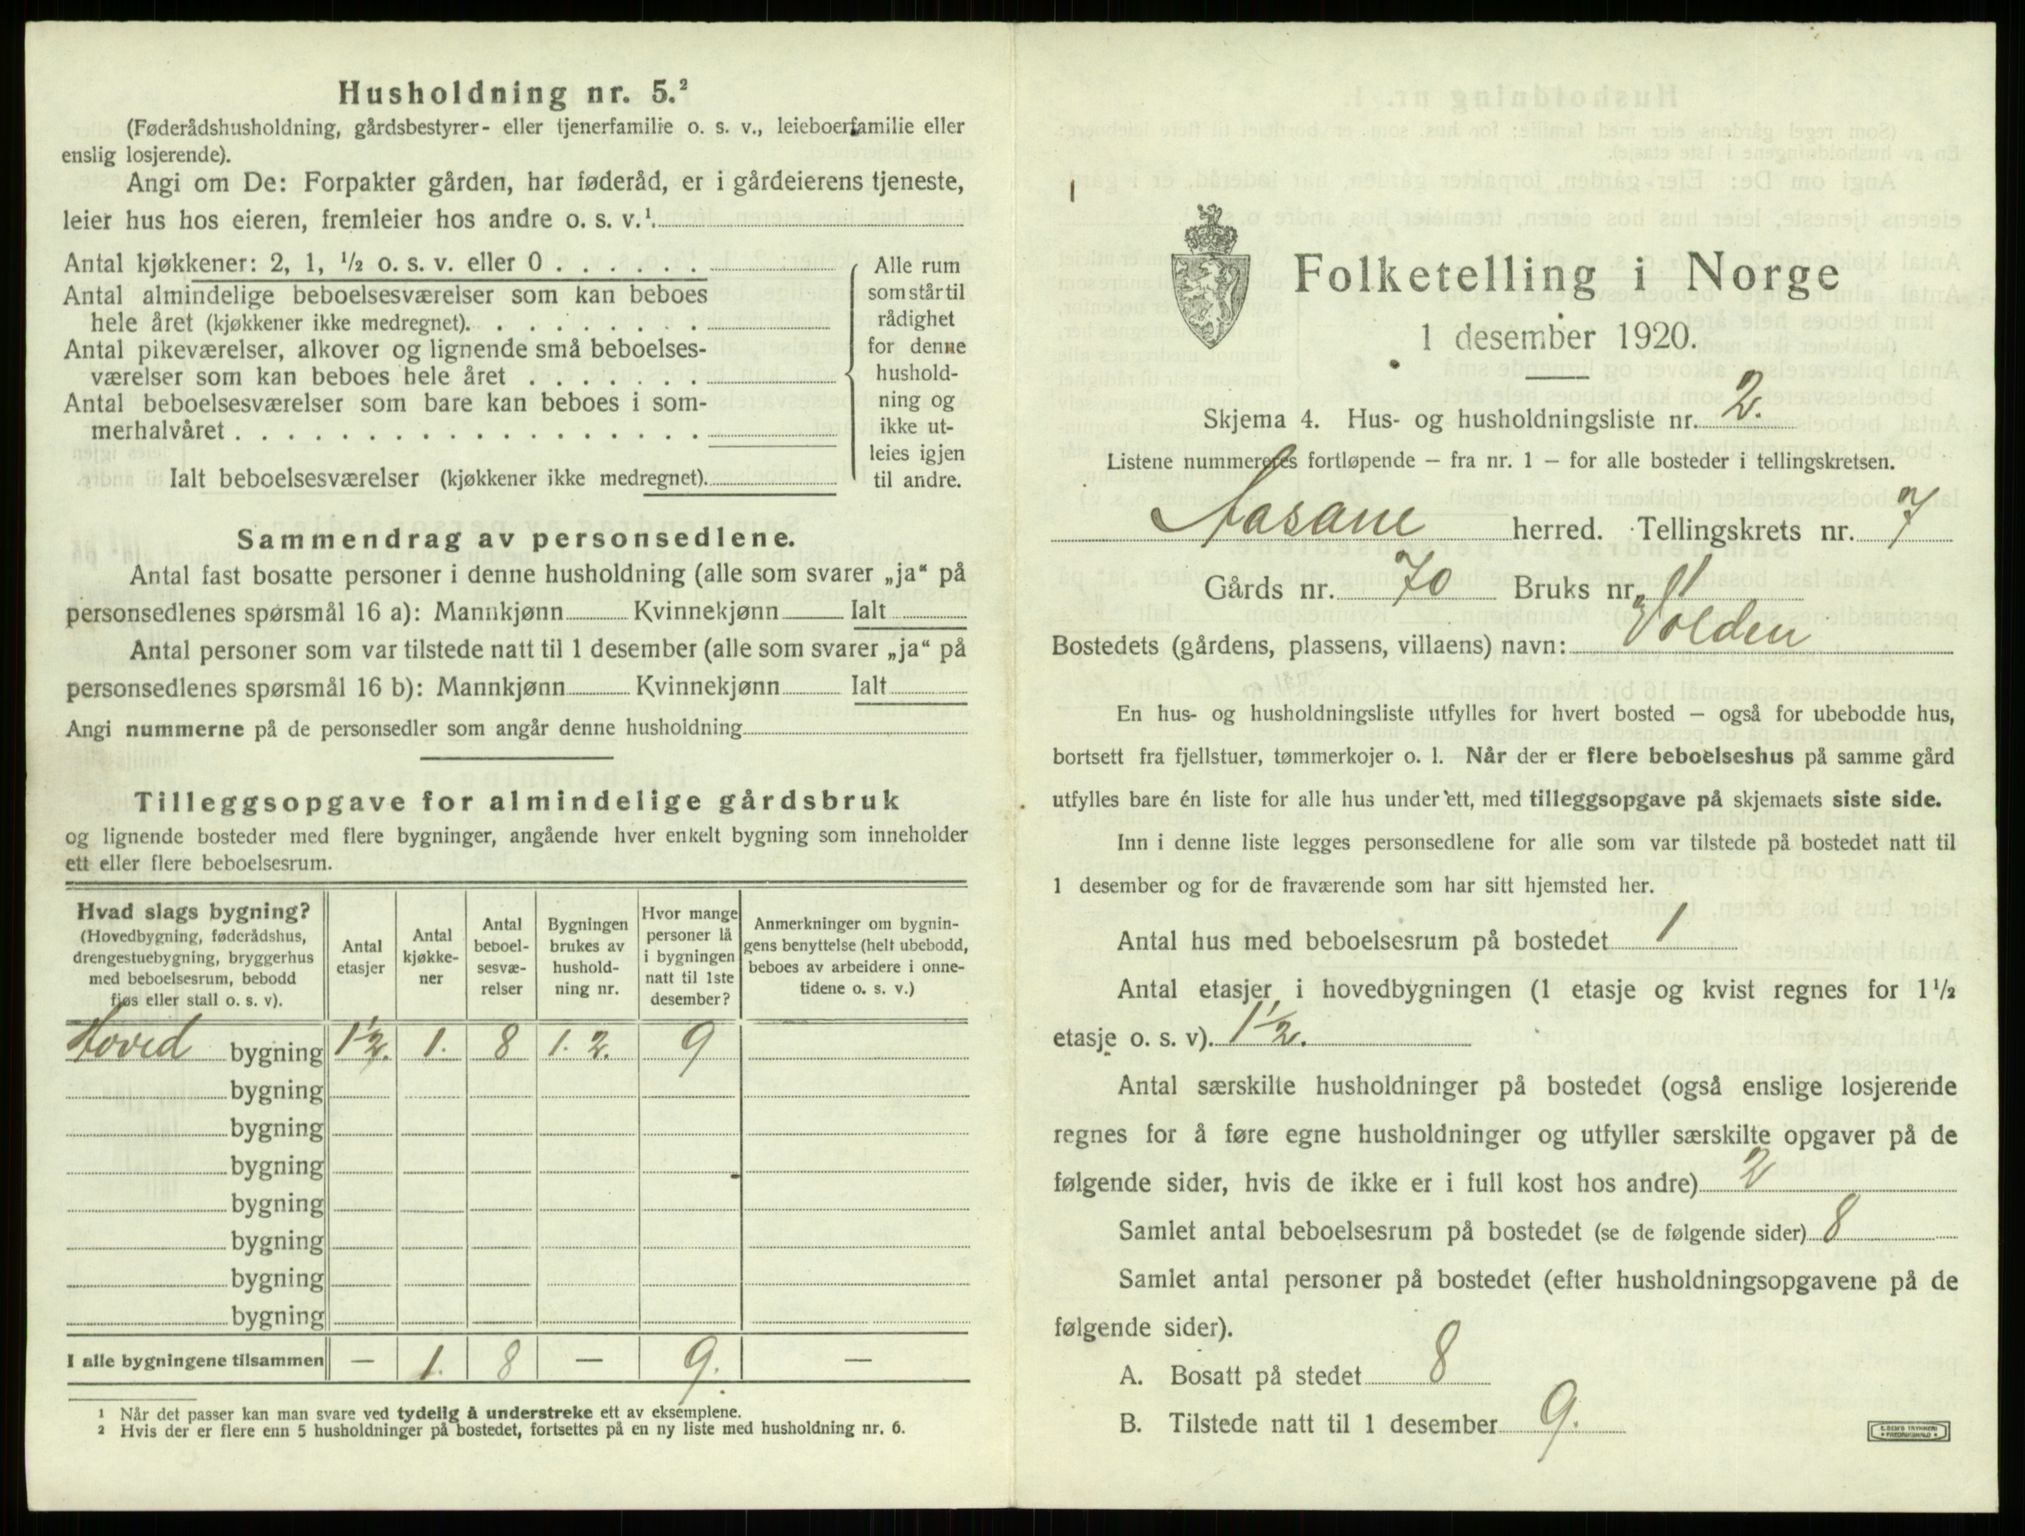 Husholdning nr. 5.²
(Føderådshusholdning, gårdsbestyrer- eller tjenerfamilie o. s. v., leieboerfamilie eller
enslig losjerende).
Angi om De: Forpakter gården, har føderåd, er i gårdeierens tjeneste,
leier hus hos eieren, fremleier hos andre o. s. v.¹
Antal kjøkkener: 2, 1, ½ o. s. v. eller 0 . . . . . .
Antal almindelige beboelsesværelser som kan beboes
hele året (kjøkkener ikke medregnet). . . . . . . . .
Antal pikeværelser, alkover og lignende små beboelses-
værelser som kan beboes hele året . . . . . . .
Antal beboelsesværelser som bare kan beboes i som-
merhalvåret . . . . . . . . . . . . . . . . . .
Ialt beboelsesværelser (kjøkkener ikke medregnet).
Alle rum
som står til
rådighet
for denne
hushold-
ning og
ikke ut-
leies igjen
til andre.
Sammendrag av personsedlene.
Antal fast bosatte personer i denne husholdning (alle som svarer „ja“ på
personsedlenes spørsmål 16 a): Mannkjønn Kvinnekjønn Ialt
Antal personer som var tilstede natt til 1 desember (alle som svarer „ja“ på
personsedlenes spørsmål 16 b): Mannkjønn Kvinnekjønn Ialt
Angi nummerne på de personsedler som angår denne husholdning
Tilleggsopgave for almindelige gårdsbruk
og lignende bosteder med flere bygninger, angående hver enkelt bygning som inneholder
ett eller flere beboelsesrum.
Hvad slags bygning?
(Hovedbygning, føderådshus,
drengestuebygning, bryggerhus
med beboelsesrum, bebodd
fjøs eller stall o. s. v).
Antal
etasjer
Antal
kjøkke-
ner
Antal
beboel-
sesvæ-
relser
Bygningen
brukes av
hushold-
ning nr.
Hvor mange
personer lå
i bygningen
natt til 1ste
desember?
Anmerkninger om bygnin-
gens benyttelse (helt ubebodd,
beboes av arbeidere i onne-
tidene o. s. v.)
Hoved bygning 1½. 1. 8 1. 2. 9
bygning
bygning
bygning
bygning
bygning
bygning
bygning
I alle bygningene tilsammen — 1. 8 — 9. —
¹ Når det passer kan man svare ved tydelig å understreke ett av eksemplene.
² Hvis der er flere enn 5 husholdninger på bostedet, fortsettes på en ny liste med husholdning nr. 6.
Folketelling i Norge
1 desember 1920.
Skjema 4. Hus- og husholdningsliste nr. 2.
Listene nummereres fortløpende – fra nr. 1 – for alle bosteder i tellingskretsen.
Aasane herred. Tellingskrets nr. 7
Gårds nr. 70 Bruks nr. 1
Bostedets (gårdens, plassens, villaens) navn: Volden
En hus- og husholdningsliste utfylles for hvert bosted – også for ubebodde hus,
bortsett fra fjellstuer, tømmerkojer o. l. Når der er flere beboelseshus på samme gård
utfylles bare én liste for alle hus under ett, med tilleggsopgave på skjemaets siste side.
Inn i denne liste legges personsedlene for alle som var tilstede på bostedet natt til
1 desember og for de fraværende som har sitt hjemsted her.
Antal hus med beboelsesrum på bostedet 1
Antal etasjer i hovedbygningen (1 etasje og kvist regnes for 1½
etasje o. s. v). 1½.
Antal særskilte husholdninger på bostedet (også enslige losjerende
regnes for å føre egne husholdninger og utfyller særskilte opgaver på de
følgende sider, hvis de ikke er i full kost hos andre) 2
Samlet antal beboelsesrum på bostedet (se de følgende sider) 8
Samlet antal personer på bostedet (efter husholdningsopgavene på de
følgende sider).
A. Bosatt på stedet 8
B. Tilstede natt til 1 desember 9.